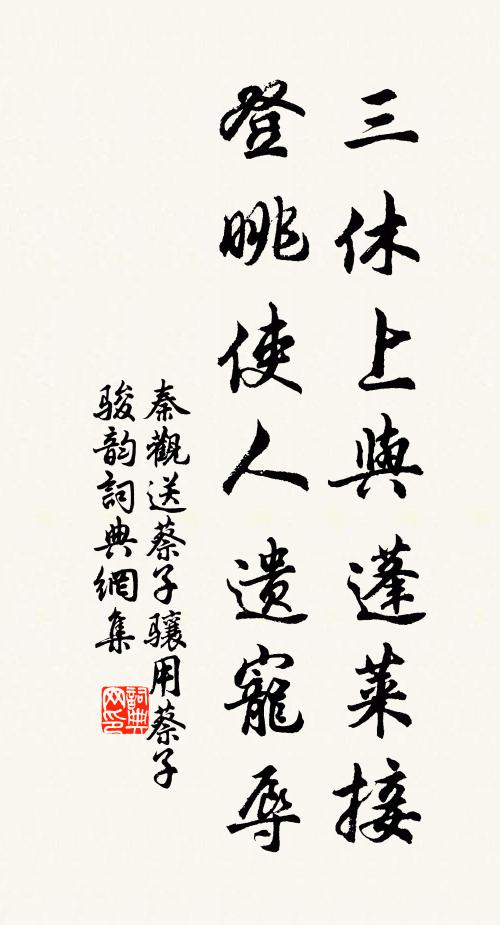 三休上與蓬萊接
登眺使人遺寵辱
秦觀送蔡子驤用蔡子
骏韵詞典網集
詞典网印